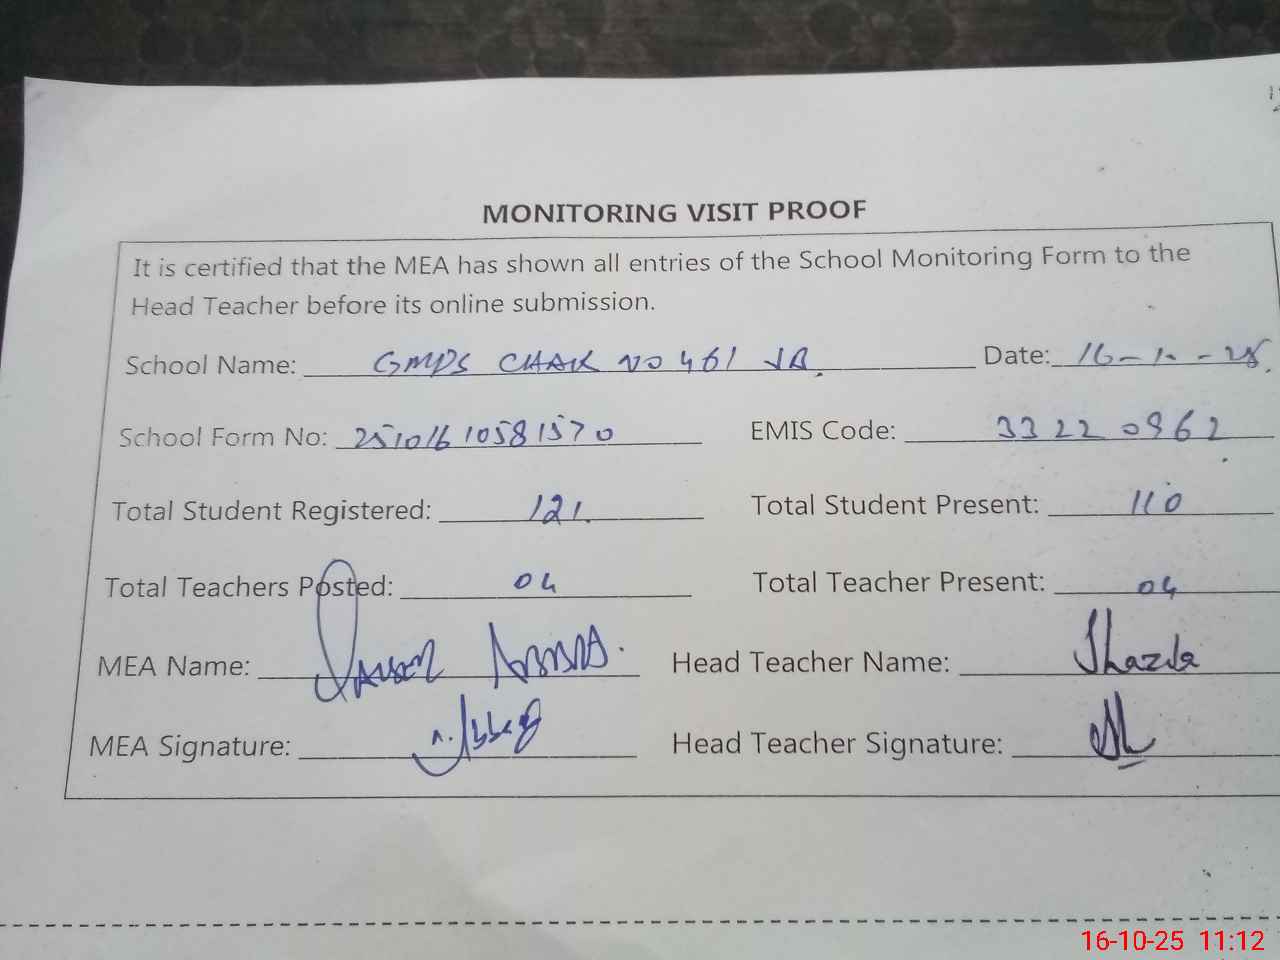 MONITORING VISIT PROOF
It is certified that the MEA has shown all entries of the School Monitoring Form to the
Head Teacher before its online submission.
School Name: GMPS CHAK NO 461 JB. Date: 16-10-25.
School Form No: 25101610581570 EMIS Code: 33220962
Total Student Registered: 121. Total Student Present: 110
Total Teachers Posted: 04 Total Teacher Present: 04
MEA Name: Head Teacher Name: Shazia
MEA Signature: Head Teacher Signature:
16-10-25 11:12